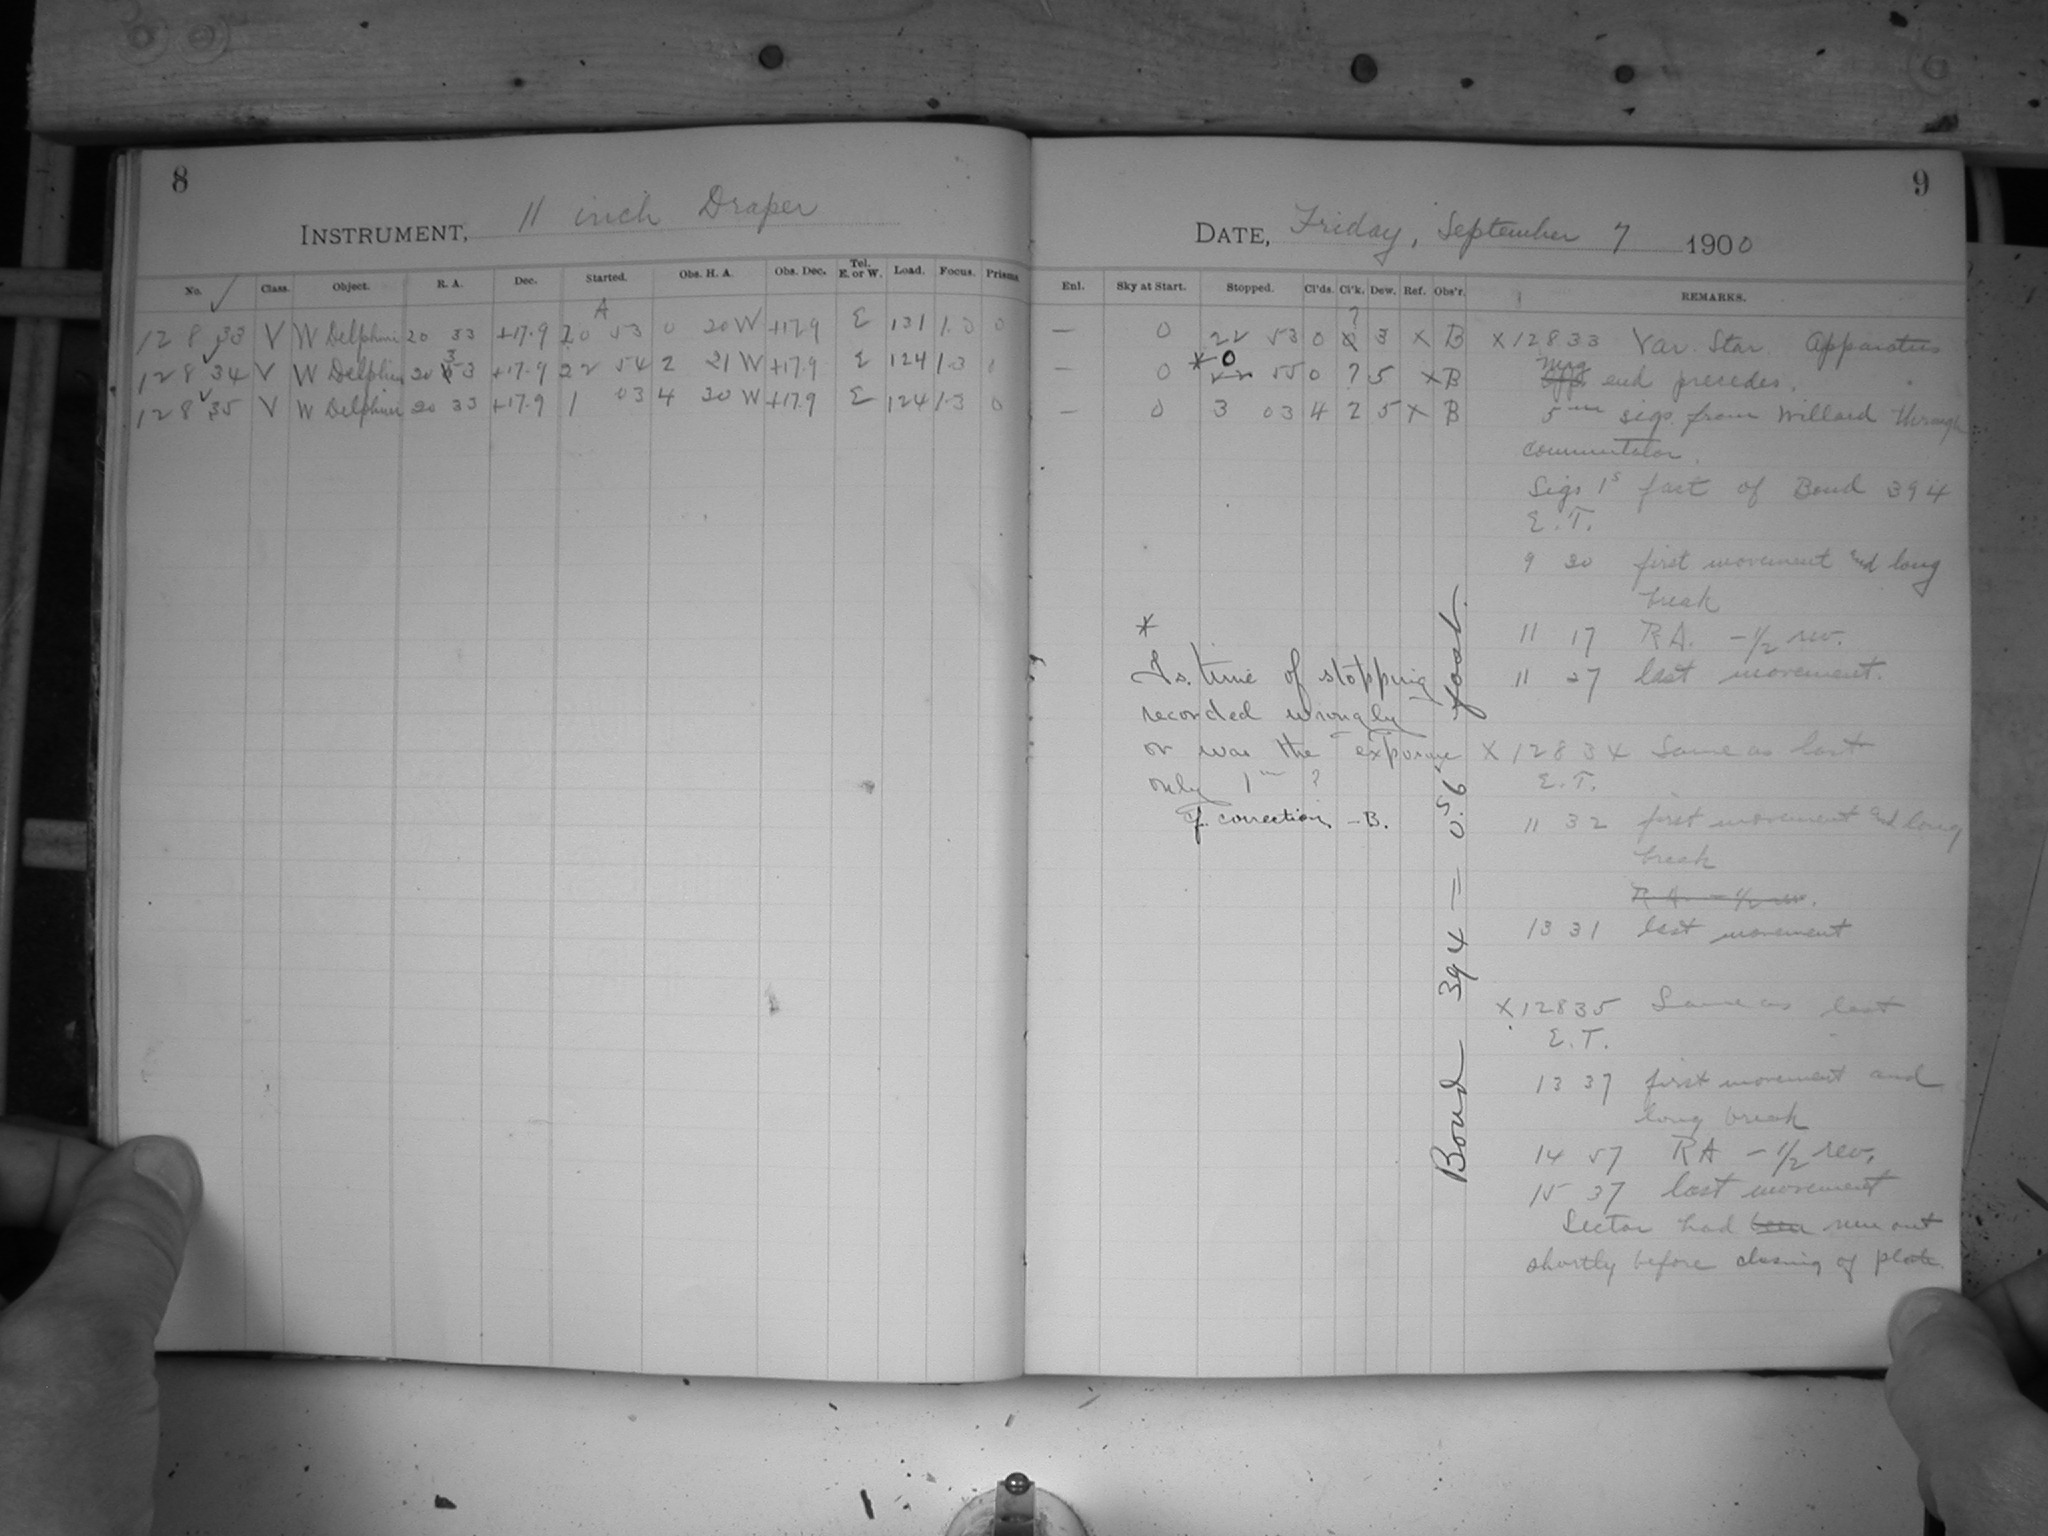 8
INSTRUMENT, 11 inch Draper
No. ✓ Class. Object. R. A. Dec. Started. Obs. H. A. Obs. Dec. Tel. E. or W. Load. Focus. Prisms
A
12833 V W Delphini 20 33 +17.9 20 53 0 20 W +17.9 E 131 1.3 0
12834 V W Delphini 20 33 +17.9 22 54 2 21 W +17.9 E 124 1.3
12835 V W Delphini 20 33 +17.9 1 03 4 30 W +17.9 E 124 1.3 0
9
DATE, Friday, September 7 1900
Enl. Sky at Start. Stopped. Cl'ds. Cl'k. Dew. Ref. Obs'r. REMARKS.
— 0 22 53 0 ? 3 X B
0 * 0 22 55 0 ? 5 X B
— 0 3 03 4 2 5 X B
X 12833 Var. Star. Apparatus
Mrg end precedes.
5 m sigs. from Willard through
commutator.
Sigs 1s fast of Bond 394
E. T.
9 20 first movement and long
break
11 17 R A. - 1/2 rev.
11 27 last movement.
X 12834 Same as last
E. T.
11 32 first movement and long
break
R A - 1/2 rev.
13 31 last movement
X 12835 Same as last
E. T.
13 37 first movement and
long break
14 57 R A - 1/2 rev.
15 37 last movement
Sector had been run out
shortly before closing of plate.
*
Is time of stopping
recorded wrongly
or was the exposure
only 1m ?
cf. correction - B.
Bond 394 = 0.s56 fast.